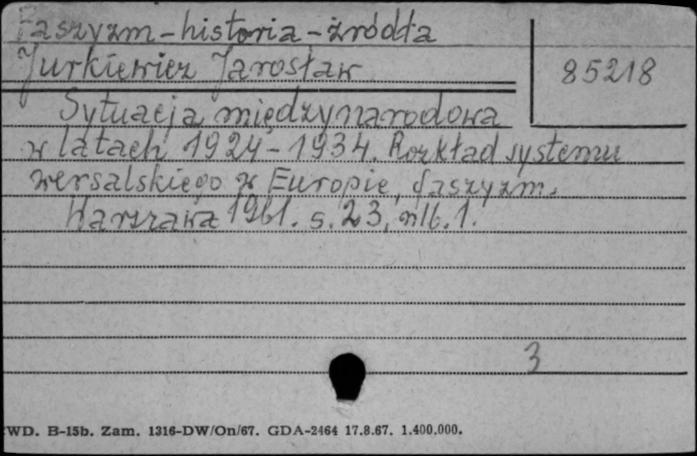 Faszyzm - historia - źródła
Jurkiewicz Jarosław
85218
Sytuacja międzynarodowa
w latach 1924-1934. Rozkład systemu
wersalskiego w Europie, faszyzm.
Warszawa 1961. s. 23, nlb. 1.
3
WD. B-15b. Zam. 1316-DW/On/67. GDA-2464 17.8.67. 1.400.000.